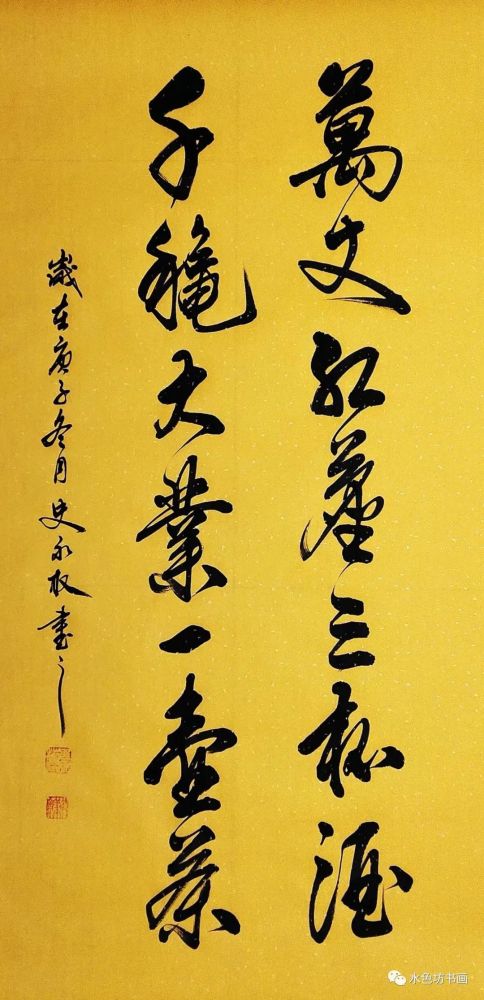 萬丈紅塵三杯酒
千穐大業一壺茶
歲在庚子冬月史永权書之
水色坊书画